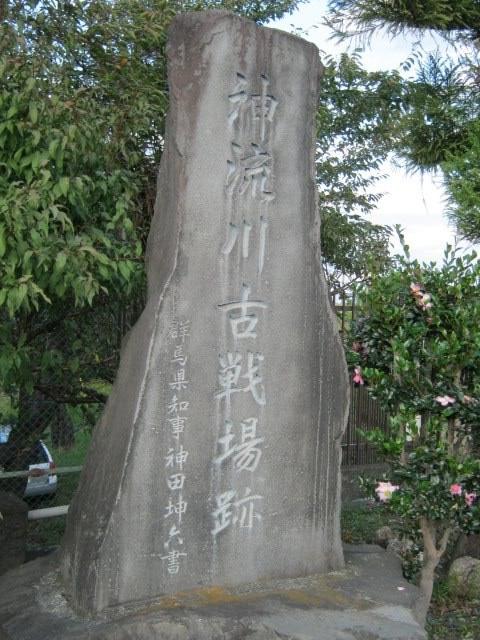 神流川古戦場跡
群馬県知事神田坤六書